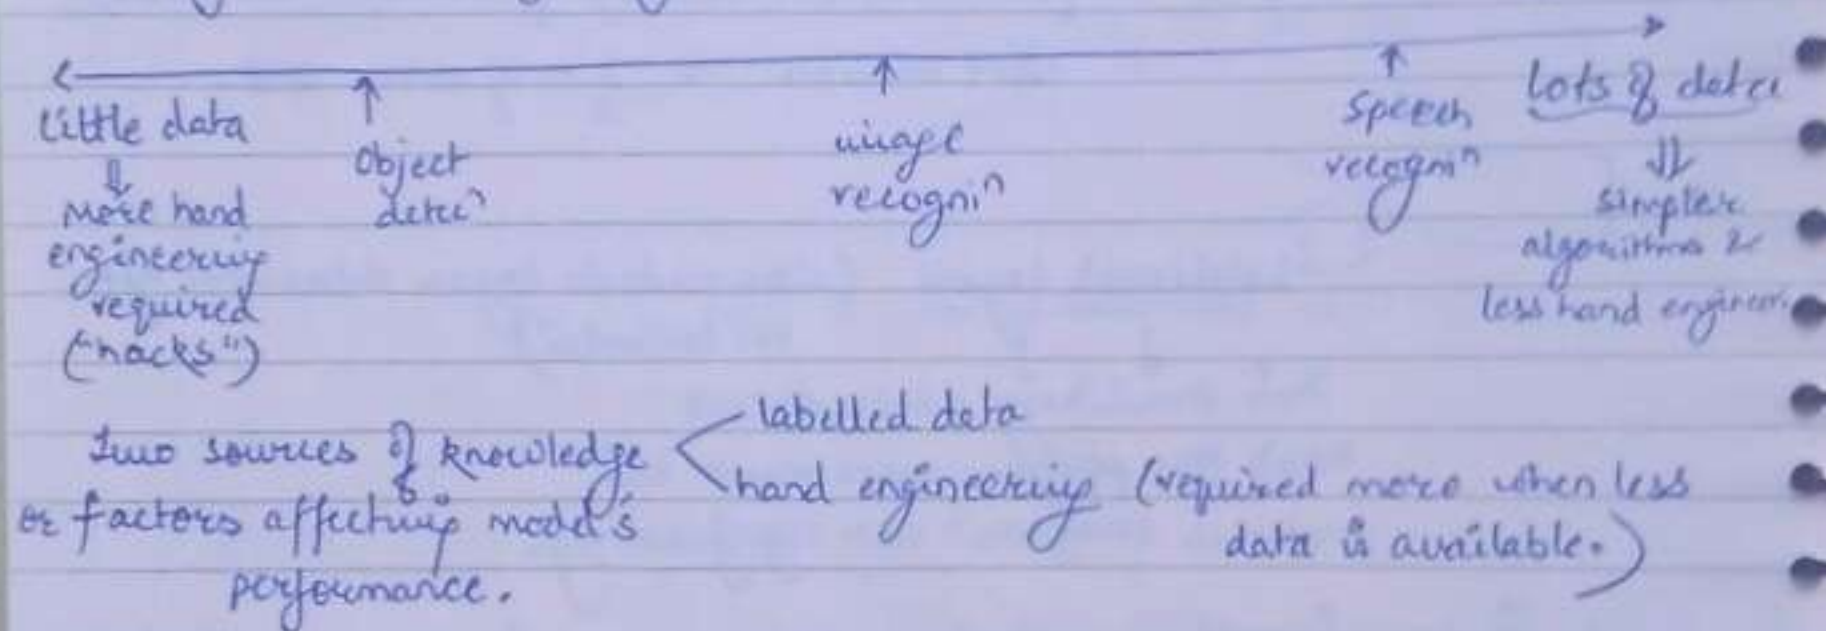 Little data
⇓
More hand
engineering
required
("hacks")
↑
Object
detecⁿ
↑
image
recogniⁿ
↑
Speech
recogniⁿ
Lots of data
⇓
simpler
algorithms &
less hand engineer
Two sources of knowledge
or factors affecting model's
performance.
labelled data
hand engineering (required more when less
data is available.)